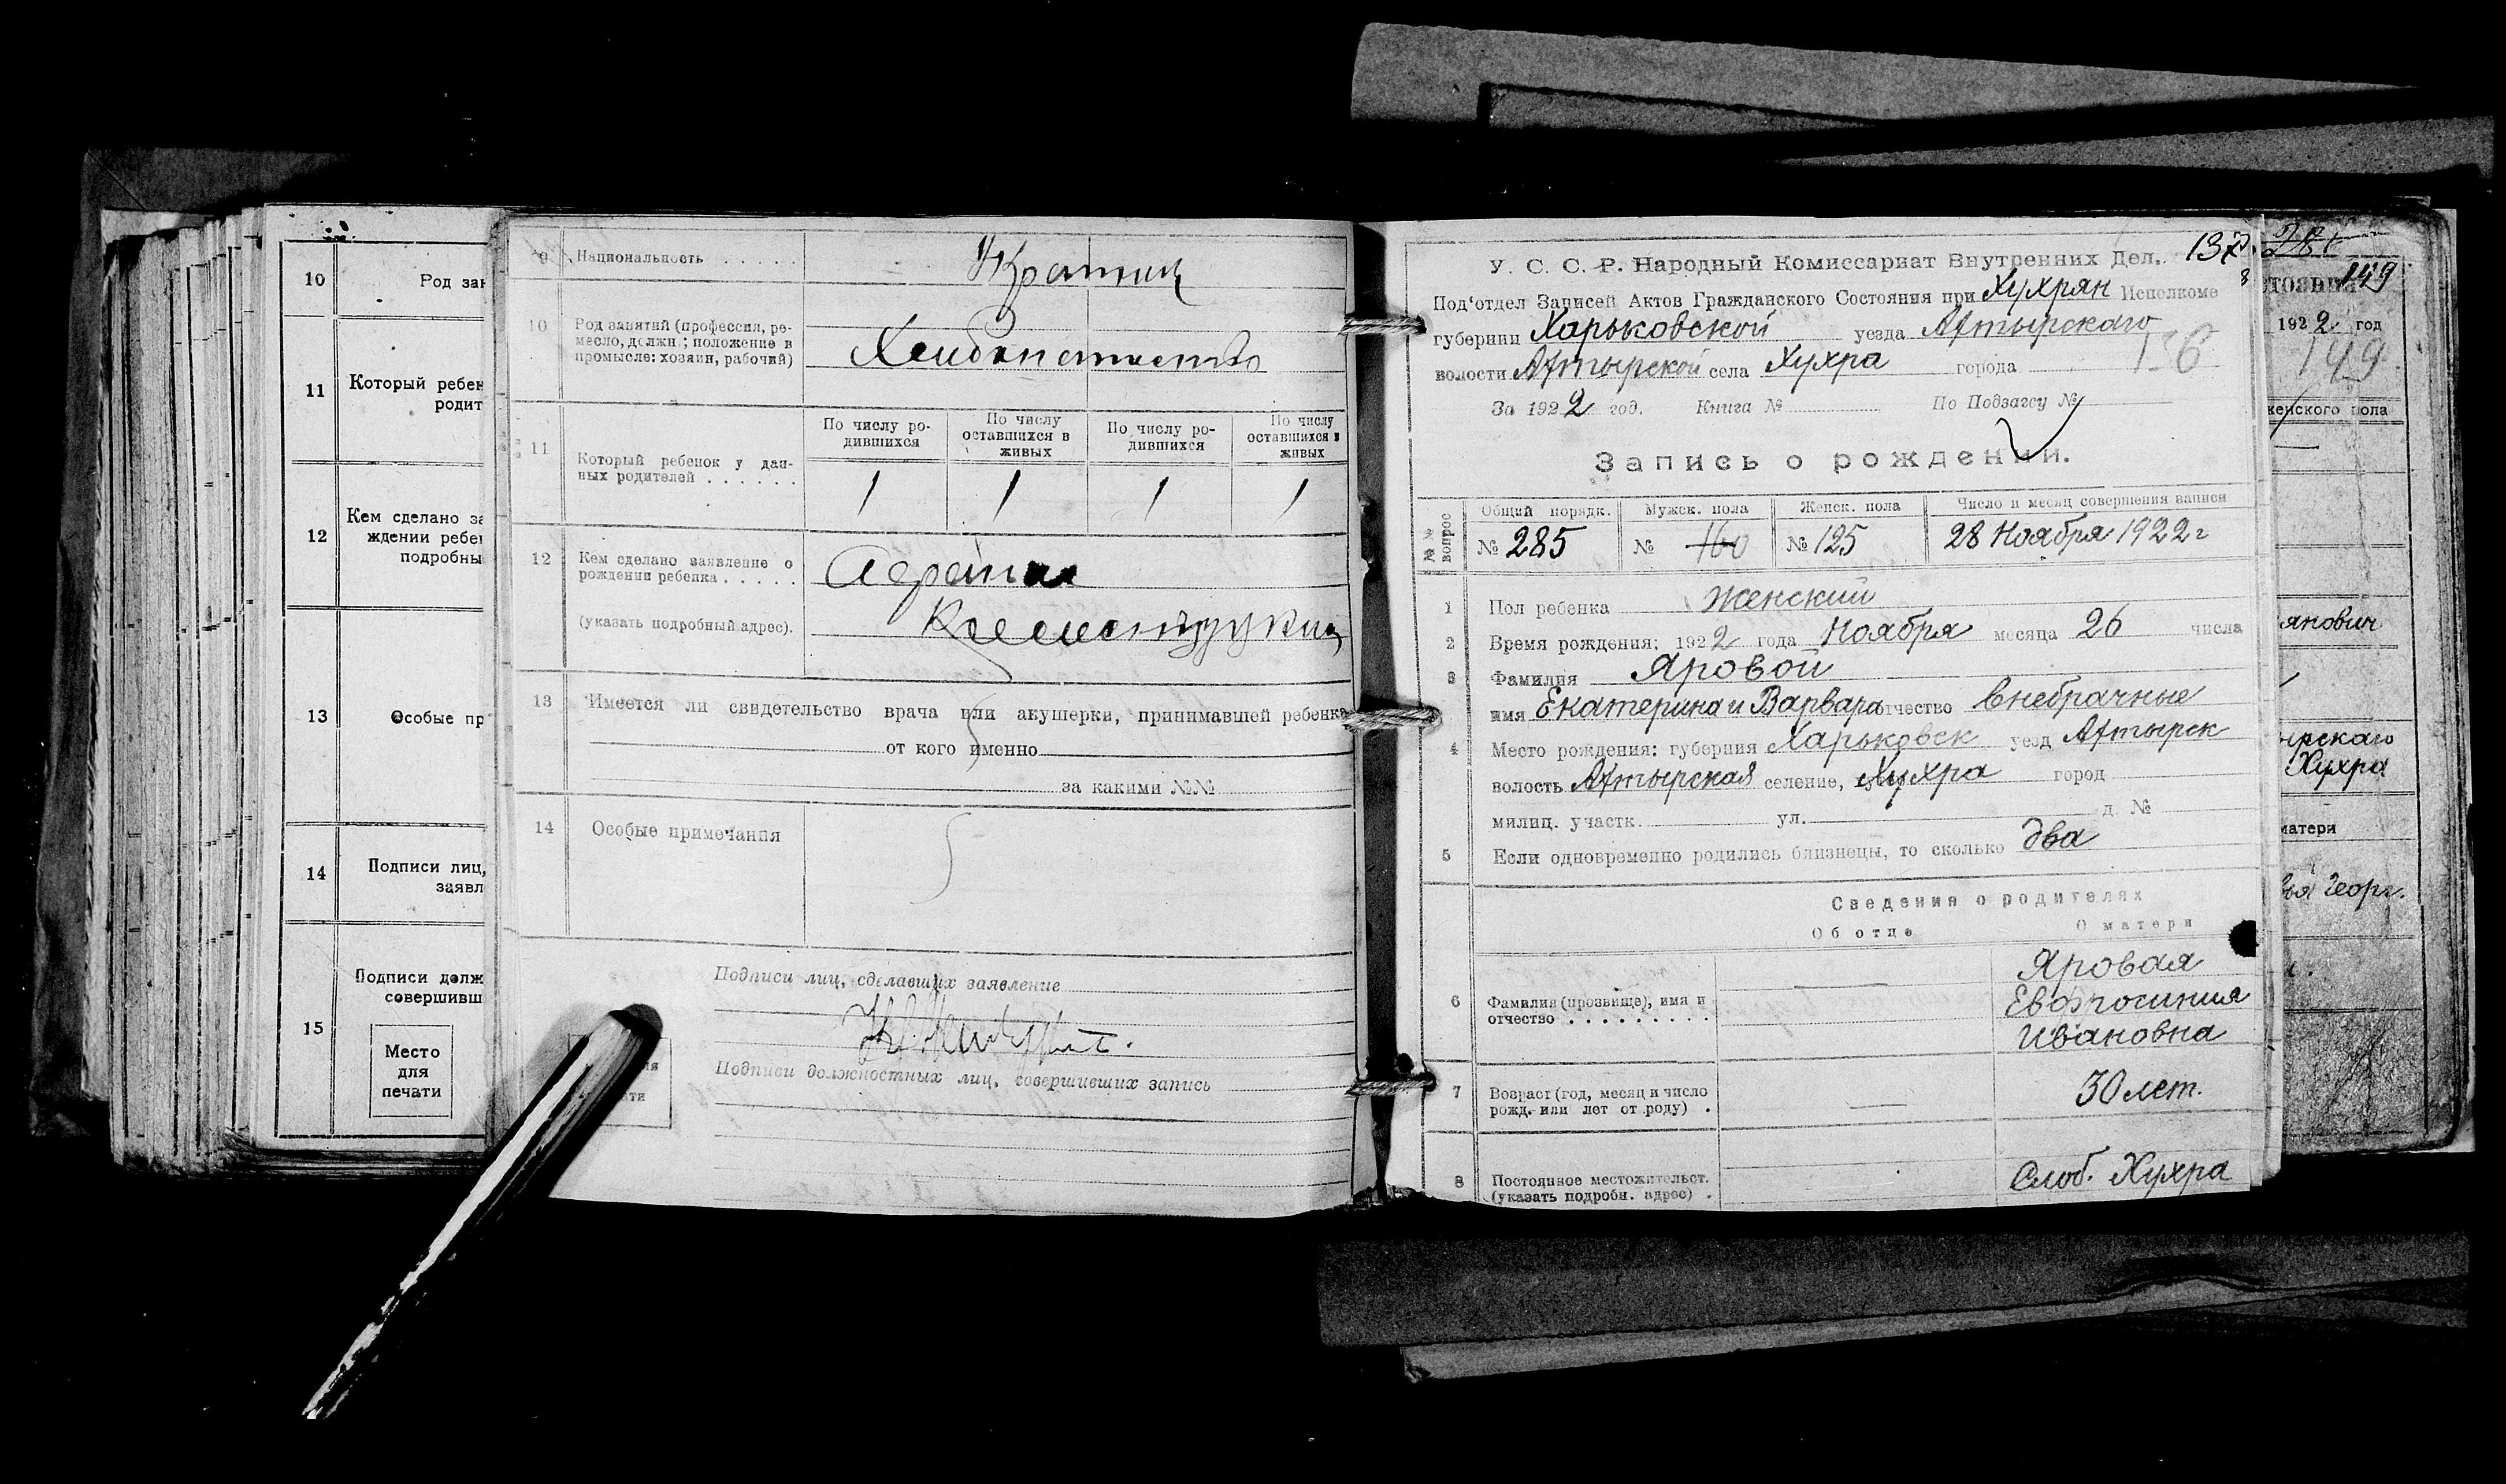 10
Род зан
11
Который ребен
родит
12
Кем сделано за
ждении ребен
подробны
13
Особые пр
14
Подписи лиц,
заявл
15
Подписи долж
совершивш
Место
для
печати
9 Национальность . . . . .
10 Род занятий (профессия, ре-
месло, должн.; положение в
промысле: хозяин, рабочий)
Хлибопашество
11 Который ребенок у дан-
ных родителей . . . . . .
По числу ро-
дившихся
По числу
оставшихся в
живых
По числу ро-
дившихся
По числу
оставшихся в
живых
1 1 1 1
12 Кем сделано заявление о
рождении ребенка . . . . .
(указать подробный адрес).
13 Имеется ли свидетельство врача или акушерки, принимавшей ребенка
от кого именно
за какими №№
14 Особые примечания
Подписи лиц, сделавших заявление
Подписи должностных лиц, совершивших запись
У. С. С. Р. Народный Комиссариат Внутренних Дел.
Под'отдел Записей Актов Гражданского Состояния при Хухрян Исполкоме
губернии Харьковской уезда Ахтырскаго
волости Ахтырской села Хухра города
136
За 1922 год. Книга № По Подзагсу №
Запись о рождении.
№№ вопрос
Общий порядк. Мужск. пола Женск. пола Число и месяц совершения записи
№ 285 № 160 № 125 28 Ноября 1922 г
1 Пол ребенка женский
2 Время рождения: 1922 года Ноября месяца 26 числа
3 Фамилия Яровой
имя Екатерина и Варвара отчество внебрачные
4 Место рождения: губерния Харьковск уезд Ахтырск
волость Ахтырская селение, Хухра город
милиц. участк. ул. д. №
5 Если одновременно родились близнецы, то сколько два
Сведения о родителях
Об отце О матери
6 Фамилия (прозвище), имя и
отчество . . . . . . . . .
Яровая
Евфросиния
Ивановна
7 Возраст (год, месяц и число
рожд. или лет от роду) .
30 лет.
8 Постоянное местожительст.
(указать подробн. адрес) .
Слоб. Хухра
149
тояния
1922 год
149
женского пола
янович
ырскаго
Хухра
матери
Георг.